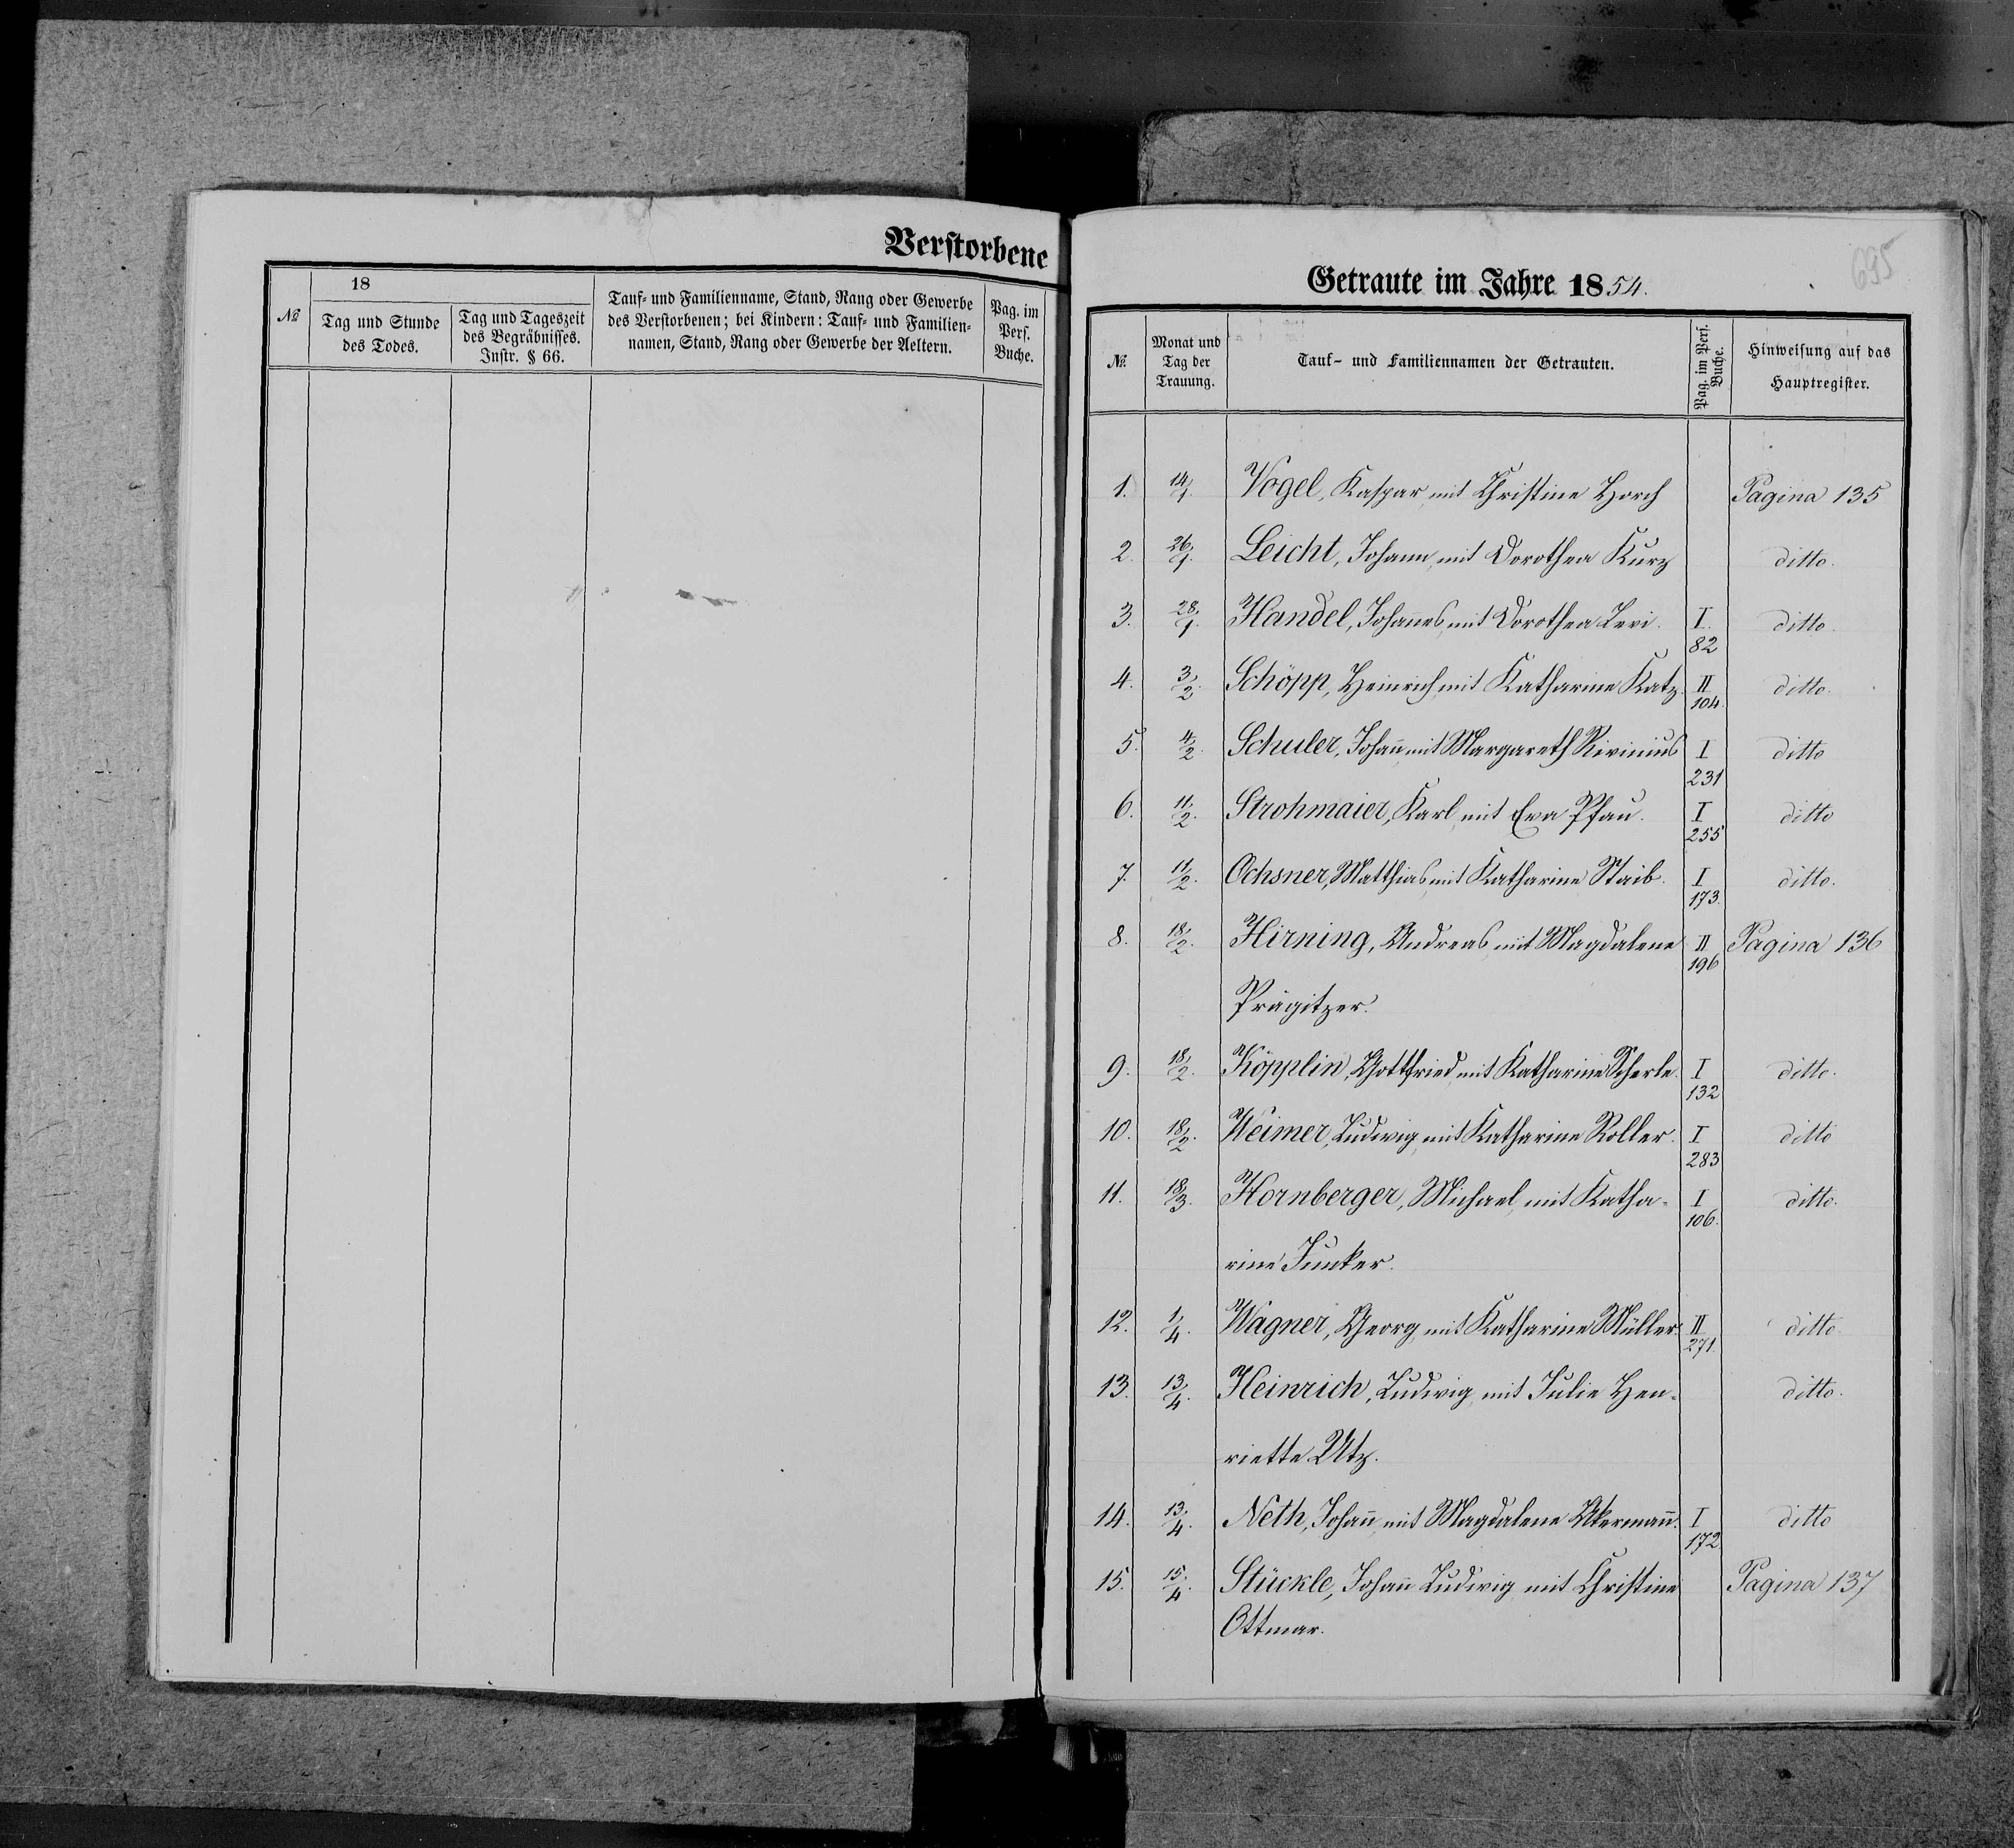 Verstorbene
№
18
Tag und Stunde
des Todes.
Tag und Tageszeit
des Begräbnisses.
Instr. § 66.
Tauf- und Familienname, Stand, Rang oder Gewerbe
des Verstorbenen; bei Kindern: Tauf- und Familien-
namen, Stand, Rang oder Gewerbe der Aeltern.
Pag. im
Pers.
Buche.
695
Getraute im Jahre 1854.
№.
Monat und
Tag der
Trauung.
Tauf- und Familiennamen der Getrauten.
Pag. im Pers.
Buche.
Hinweisung auf das
Hauptregister.
1. 14/1. Vogel, Kaspar, mit Christine Horch Pagina 135
2. 26/1. Leicht, Johann, mit Dorothea Kurz ditto.
3. 28/1. Handel, Johannes, mit Dorothea Levi. I. 82 ditto.
4. 3/2. Schöpp, Heinrich, mit Katharine Katz. II 104. ditto.
5. 4/2. Schuler, Johañ, mit Margareth Rivinius I 231 ditto
6. 11/2. Strohmaier, Karl, mit Eva Pfau. I 255 ditto
7. 11/2. Ochsner, Matthias, mit Katharine Staib. I 173. ditto.
8. 18/2. Hirning, Andreas, mit Magdalene II 196 Pagina 136
Prägitzer.
9. 18/2. Köpplin, Gottfried, mit Katharine Scherle. I 132 ditto.
10. 18/2. Weimer, Ludwig, mit Katharine Roller. I 283 ditto
11. 18/3. Hornberger, Michael, mit Katha- I 106. ditto.
rine Junker.
12. 1/4. Wagner, Georg, mit Katharine Müller. II 271. ditto.
13. 13/4. Heinrich, Ludwig, mit Julie Hen- ditto.
riette Utz.
14. 13/4. Neth, Johañ, mit Magdalene I 172 ditto
15. 15/4. Stückle, Johañ Ludwig, mit Christine Pagina 137
Ottmar.